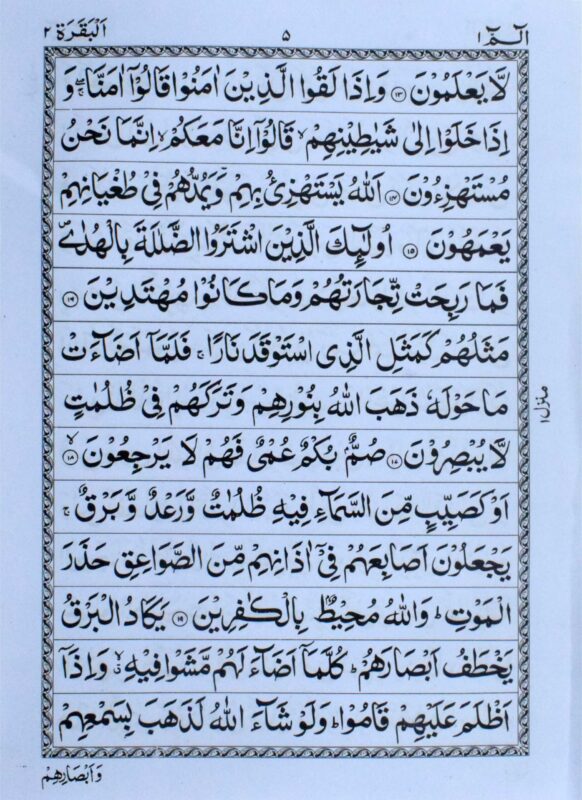 الٓمّٓ ١ ٥ اَلْبَقَرَة ٢
لَّا يَعْلَمُوْنَ ﴿١٣﴾ وَاِذَا لَقُوا الَّذِيْنَ اٰمَنُوْا قَالُوْٓا اٰمَنَّا ۚۖ وَ
اِذَا خَلَوْا اِلٰى شَيٰطِيْنِهِمْ ۙ قَالُوْٓا اِنَّا مَعَكُمْ ۙ اِنَّمَا نَحْنُ
مُسْتَهْزِءُوْنَ ﴿١٤﴾ اَللّٰهُ يَسْتَهْزِئُ بِهِمْ وَيَمُدُّهُمْ فِىْ طُغْيَانِهِمْ
يَعْمَهُوْنَ ﴿١٥﴾ اُولٰٓئِكَ الَّذِيْنَ اشْتَرَوُا الضَّلٰلَةَ بِالْهُدٰى ۪
فَمَا رَبِحَتْ تِّجَارَتُهُمْ وَمَا كَانُوْا مُهْتَدِيْنَ ﴿١٦﴾
مَثَلُهُمْ كَمَثَلِ الَّذِى اسْتَوْقَدَ نَارًا ۚ فَلَمَّآ اَضَآءَتْ
مَا حَوْلَهٗ ذَهَبَ اللّٰهُ بِنُوْرِهِمْ وَتَرَكَهُمْ فِىْ ظُلُمٰتٍ
لَّا يُبْصِرُوْنَ ﴿١٧﴾ صُمٌّۢ بُكْمٌ عُمْىٌ فَهُمْ لَا يَرْجِعُوْنَ ﴿١٨﴾ ۙ
اَوْ كَصَيِّبٍ مِّنَ السَّمَآءِ فِيْهِ ظُلُمٰتٌ وَّرَعْدٌ وَّبَرْقٌ ۚ
يَجْعَلُوْنَ اَصَابِعَهُمْ فِىْٓ اٰذَانِهِمْ مِّنَ الصَّوَاعِقِ حَذَرَ
الْمَوْتِ ؕ وَاللّٰهُ مُحِيْطٌۢ بِالْكٰفِرِيْنَ ﴿١٩﴾ يَكَادُ الْبَرْقُ
يَخْطَفُ اَبْصَارَهُمْ ؕ كُلَّمَآ اَضَآءَ لَهُمْ مَّشَوْا فِيْهِ ۙ وَاِذَآ
اَظْلَمَ عَلَيْهِمْ قَامُوْا ؕ وَلَوْ شَآءَ اللّٰهُ لَذَهَبَ بِسَمْعِهِمْ
منزل ١
وَاَبْصَارِهِمْ